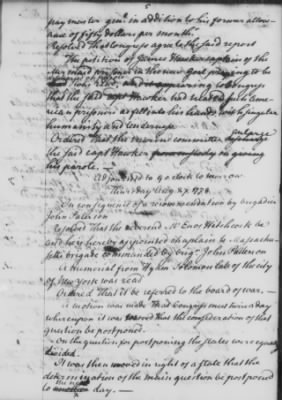 5
pay master genl. in addition to his former allow-
ance of fifty dollars per month.
Resolved That Congress agree to the said report
The petition of James Hawker captain of the
Mermaid prisoner in the new Goal praying to be
and it appearing to Congress
that the said capt Hawker had treated such Ame-
rican prisoners as fell into his hands with singular
humanity and tenderness
Ordered That the marine committee enlarge
the said Capt Hawker from custody on giving
his parole.
Adjourned to 9 o clock to morrow
Thursday Aug 27. 1778.
In consequence of a recommendation by brigadier
John Paterson
Resolved that the reverend Mr Enos Hitchcock be
and he is hereby appointed chaplain to Massachu-
brigade commanded by brigr. John Paterson
A memorial from Hyam Solomon late of the city
of New York was read
Ordered That it be referred to the board of war. —
A motion was made That Congress meet twice a day
whereupon it was moved that the consideration of that
question be postponed.
On the question for postponing the states were equally
divided.
It was then moved in right of a state that the
determination of the main question be postponed
to day. —